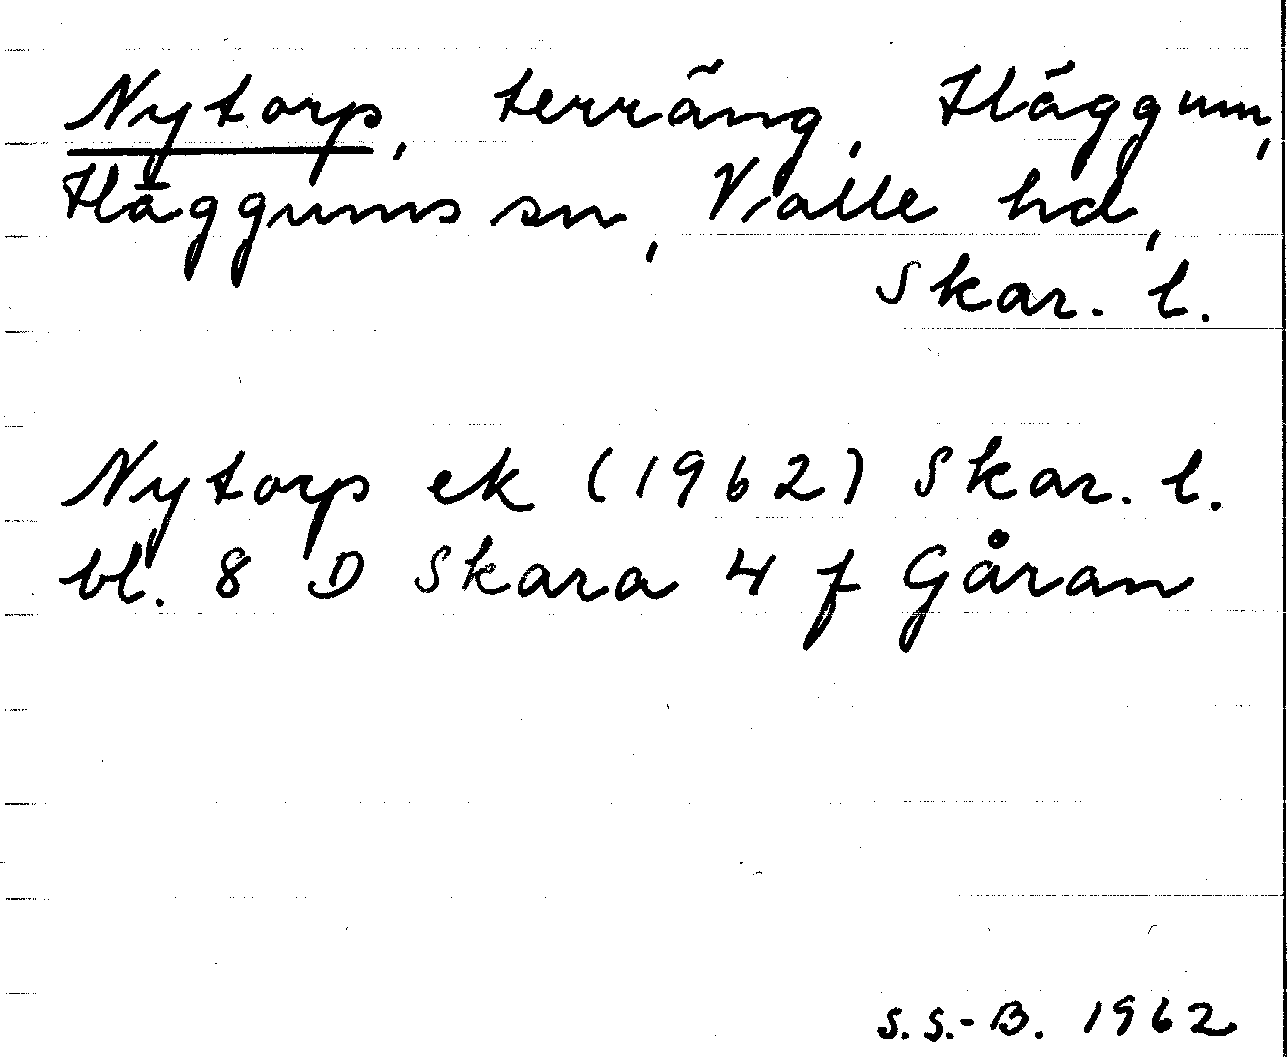 Nytorp, terräng, Häggum,
Häggums sn, Valle hd,
Skar. l.
Nytorp ek (1962) Skar. l.
bl. 8 D Skara 4 f Gåran
S.S.-B. 1962